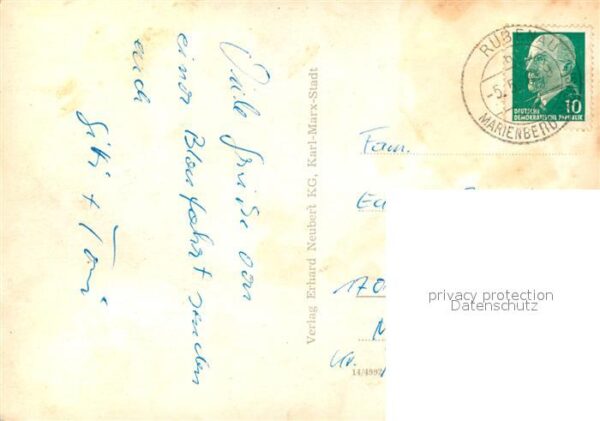 Viele Grüße von
einer Blaufahrt senden
euch
Gitti + Toni
Verlag Erhard Neubert KG, Karl-Marx-Stadt
14/4992
RÜBENAU
b
-5.
MARIENBERG
DEUTSCHE
DEMOKRATISCHE REPUBLIK
10
Fam.
170
M
Kr.
privacy protection
Datenschutz